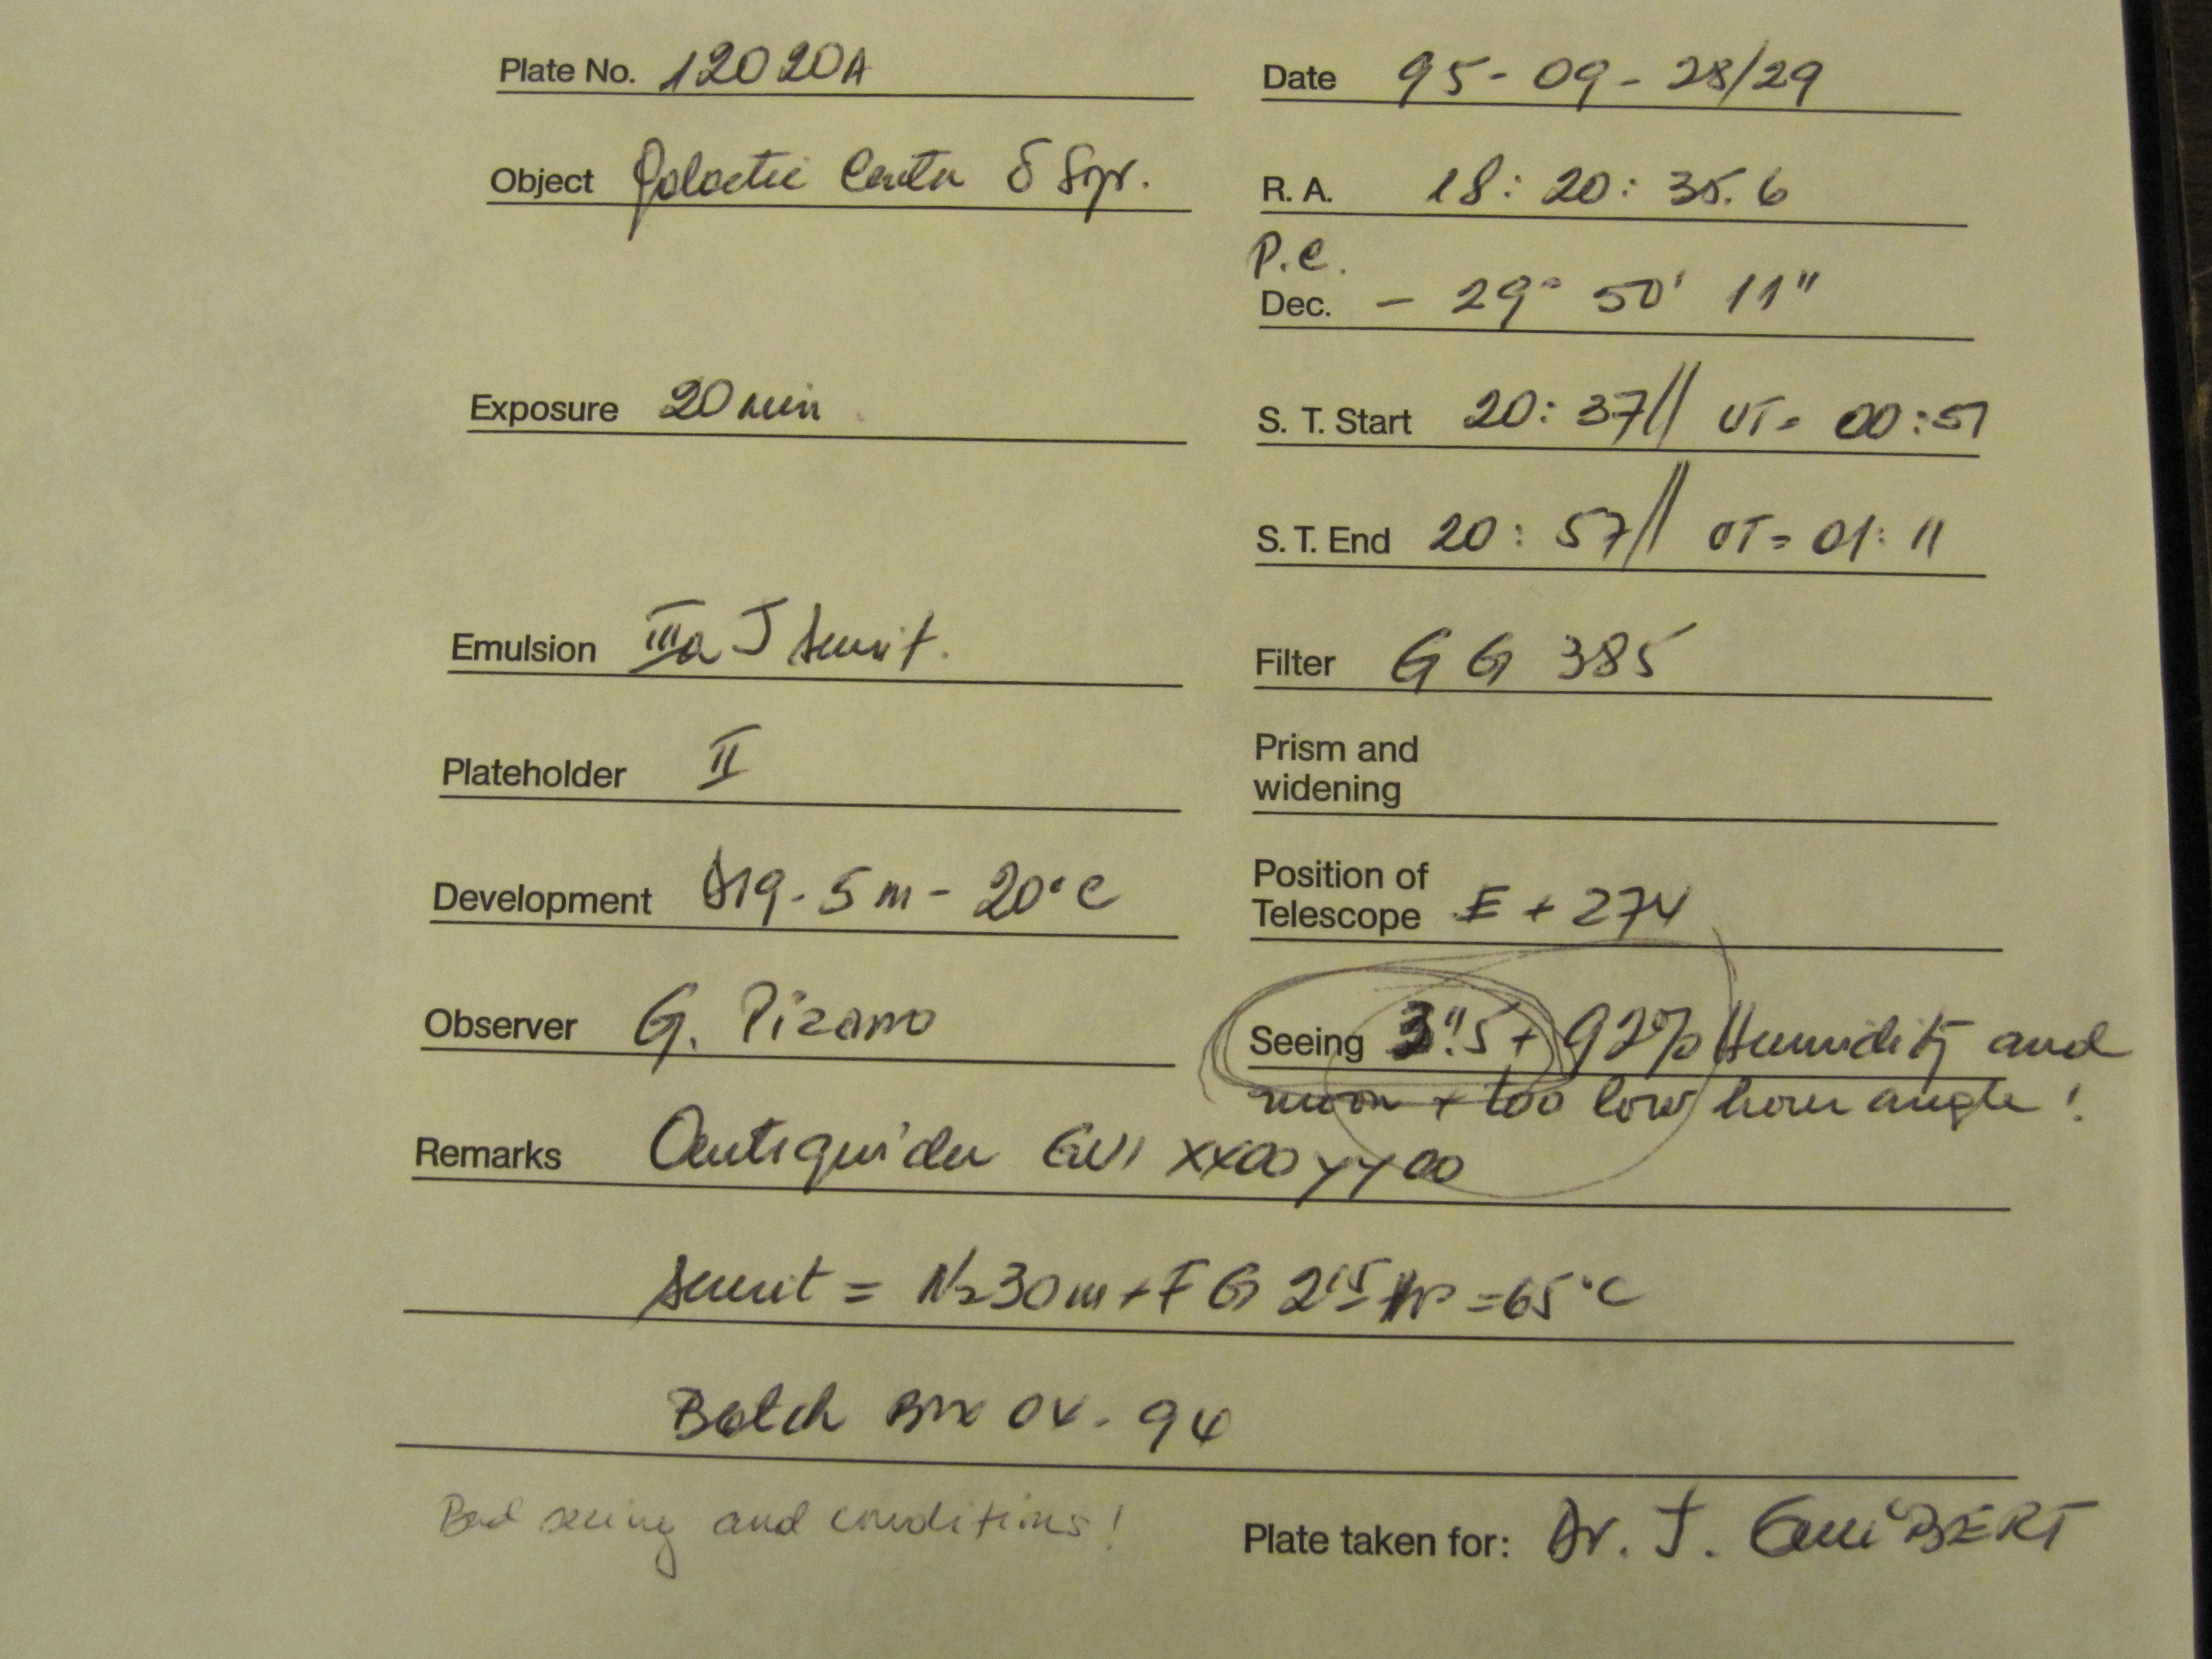 Plate No. 12020A
Date 95-09-28/29
Object Galactic Center δ Sgr.
R. A. 18: 20: 35.6
P.C.
Dec. - 29° 50' 11"
Exposure 20 min
S. T. Start 20: 37// UT= 00:51
S. T. End 20: 57// UT= 01: 11
Emulsion IIIa J sensit.
Filter GG 385
Plateholder II
Prism and
widening
Development D19 - 5 m - 20°C
Position of
Telescope E + 274
Observer G. Pizarro
Seeing 3".5 + 92% Humidity and
moon + too low hour angle !
Remarks Autoguider XX00 YY00
Sensit = N2 30m + F G 2 = 65°C
Batch 04-94
Bad seeing and conditions!
Plate taken for: Dr. J. GuiBERT